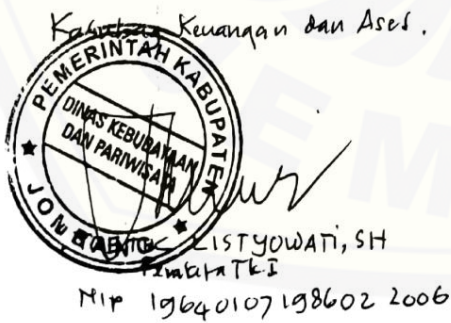 Kasubag Keuangan dan Aset.
PEMERINTAH KABUPATEN
DINAS KEBUDAYAAN
DAN PARIWISATA
JOMBANG
LISTYOWATI, SH
Penata Tk.I
Nip 19640107 198602 2006